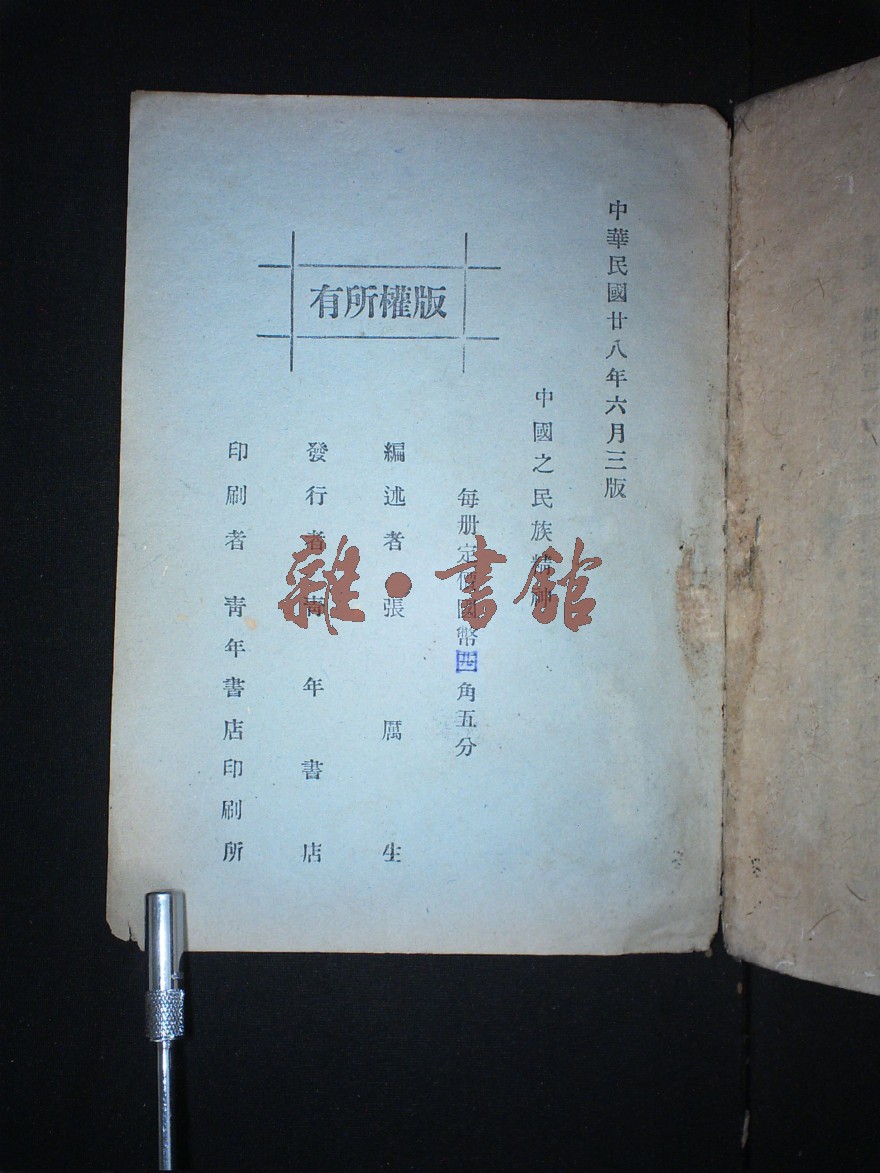 中華民國廿八年六月三版
中國之民族精神
每册定價國幣四角五分
編述者張厲生
發行者青年書店
印刷者青年書店印刷所
版權所有
雜·書館